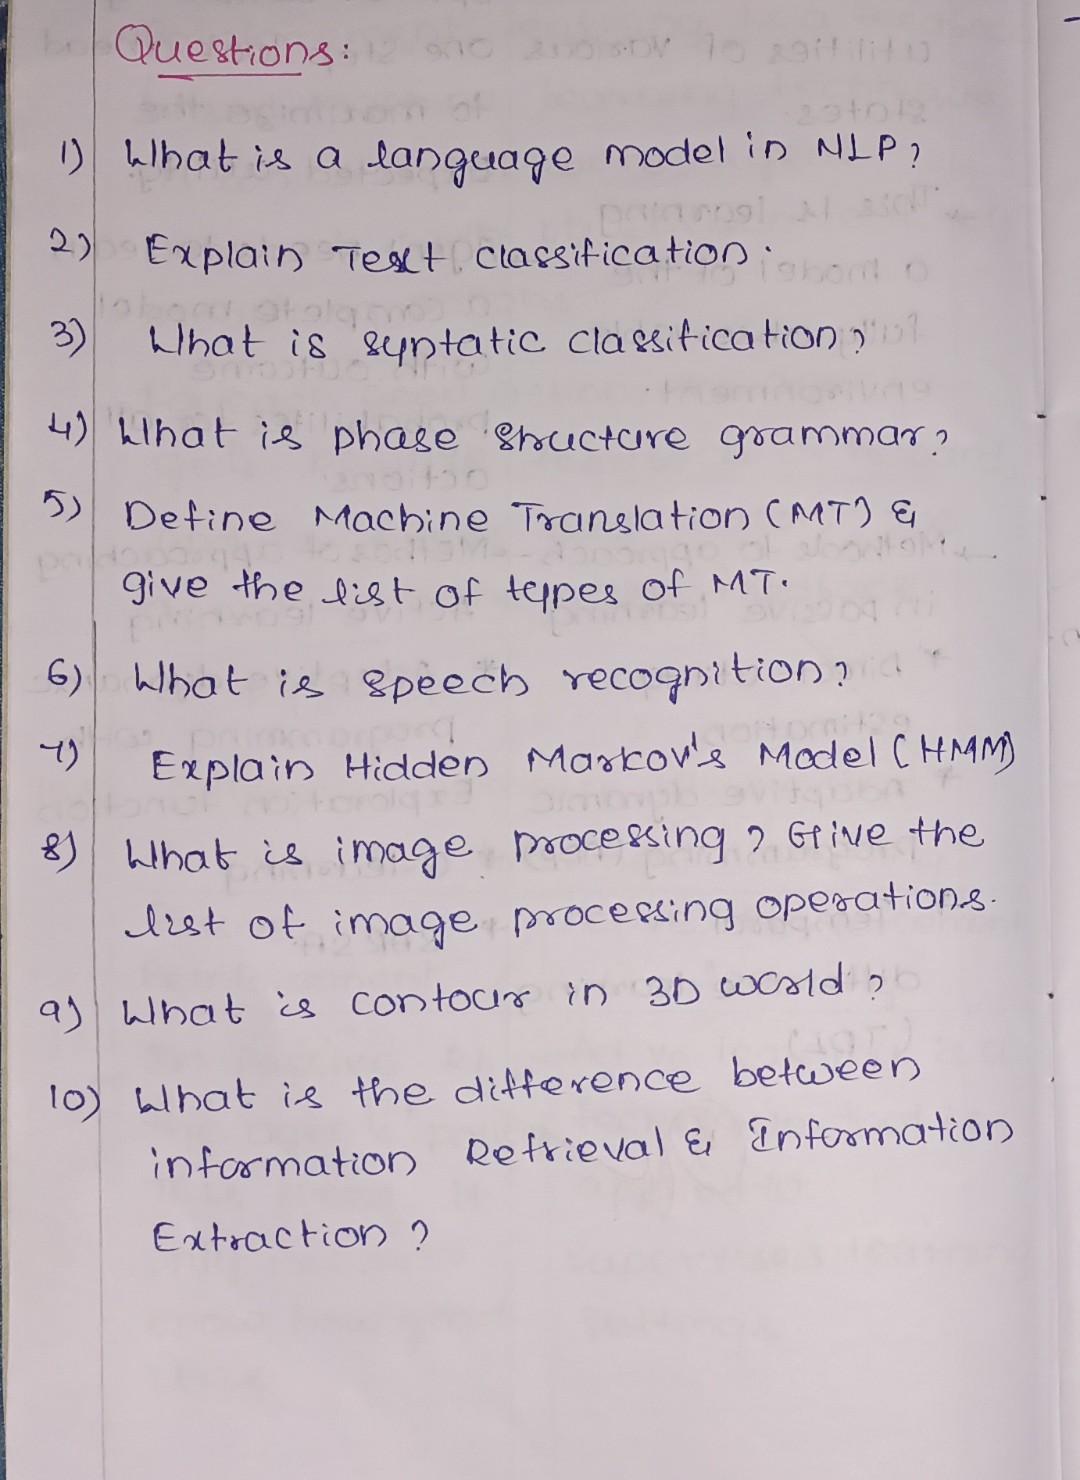 Questions:
1) What is a language model in NLP?
2) Explain Text classification.
3) What is syntatic classification?
4) What is phase structure grammar?
5) Define Machine Translation (MT) &
give the list of types of MT.
6) What is speech recognition?
7) Explain Hidden Markov's Model (HMM)
8) What is image processing? Give the
list of image processing operations.
9) What is contour in 3D world?
10) What is the difference between
information Retrieval & Information
Extraction?